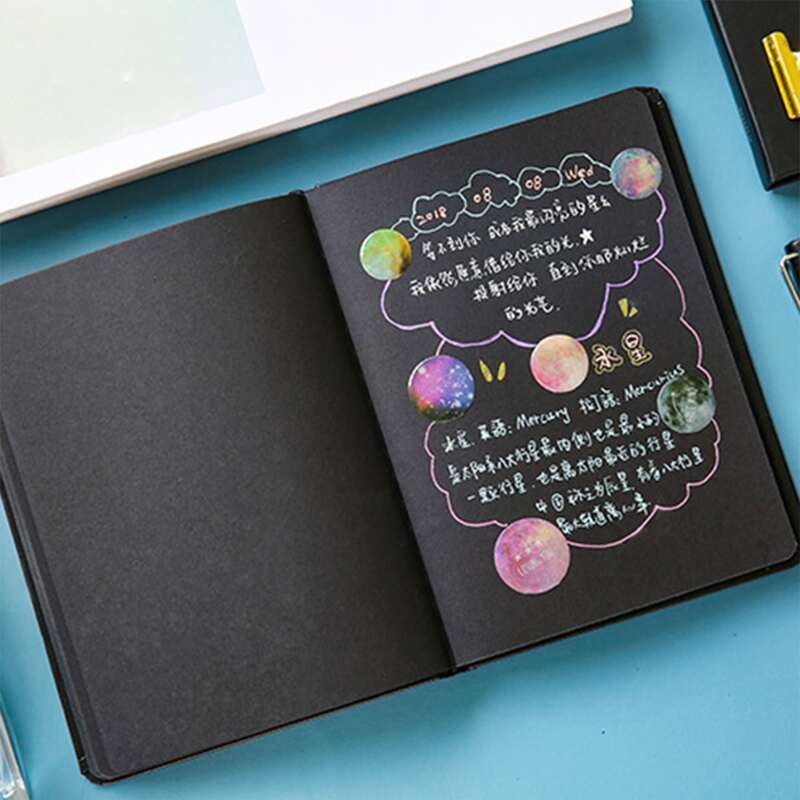 2018 08 08 Wed
等不到你 成为我最闪亮的星星
我依然愿意借给你我的光
投射给你 直到你那灿烂
的光芒.
水星
水星,英语:Mercury 拉丁语:Mercurius
是太阳系八大行星最内侧也是最小的
一颗行星,也是离太阳最近的行星
中国称之为辰星,有着八大行星
最大轨道离心率